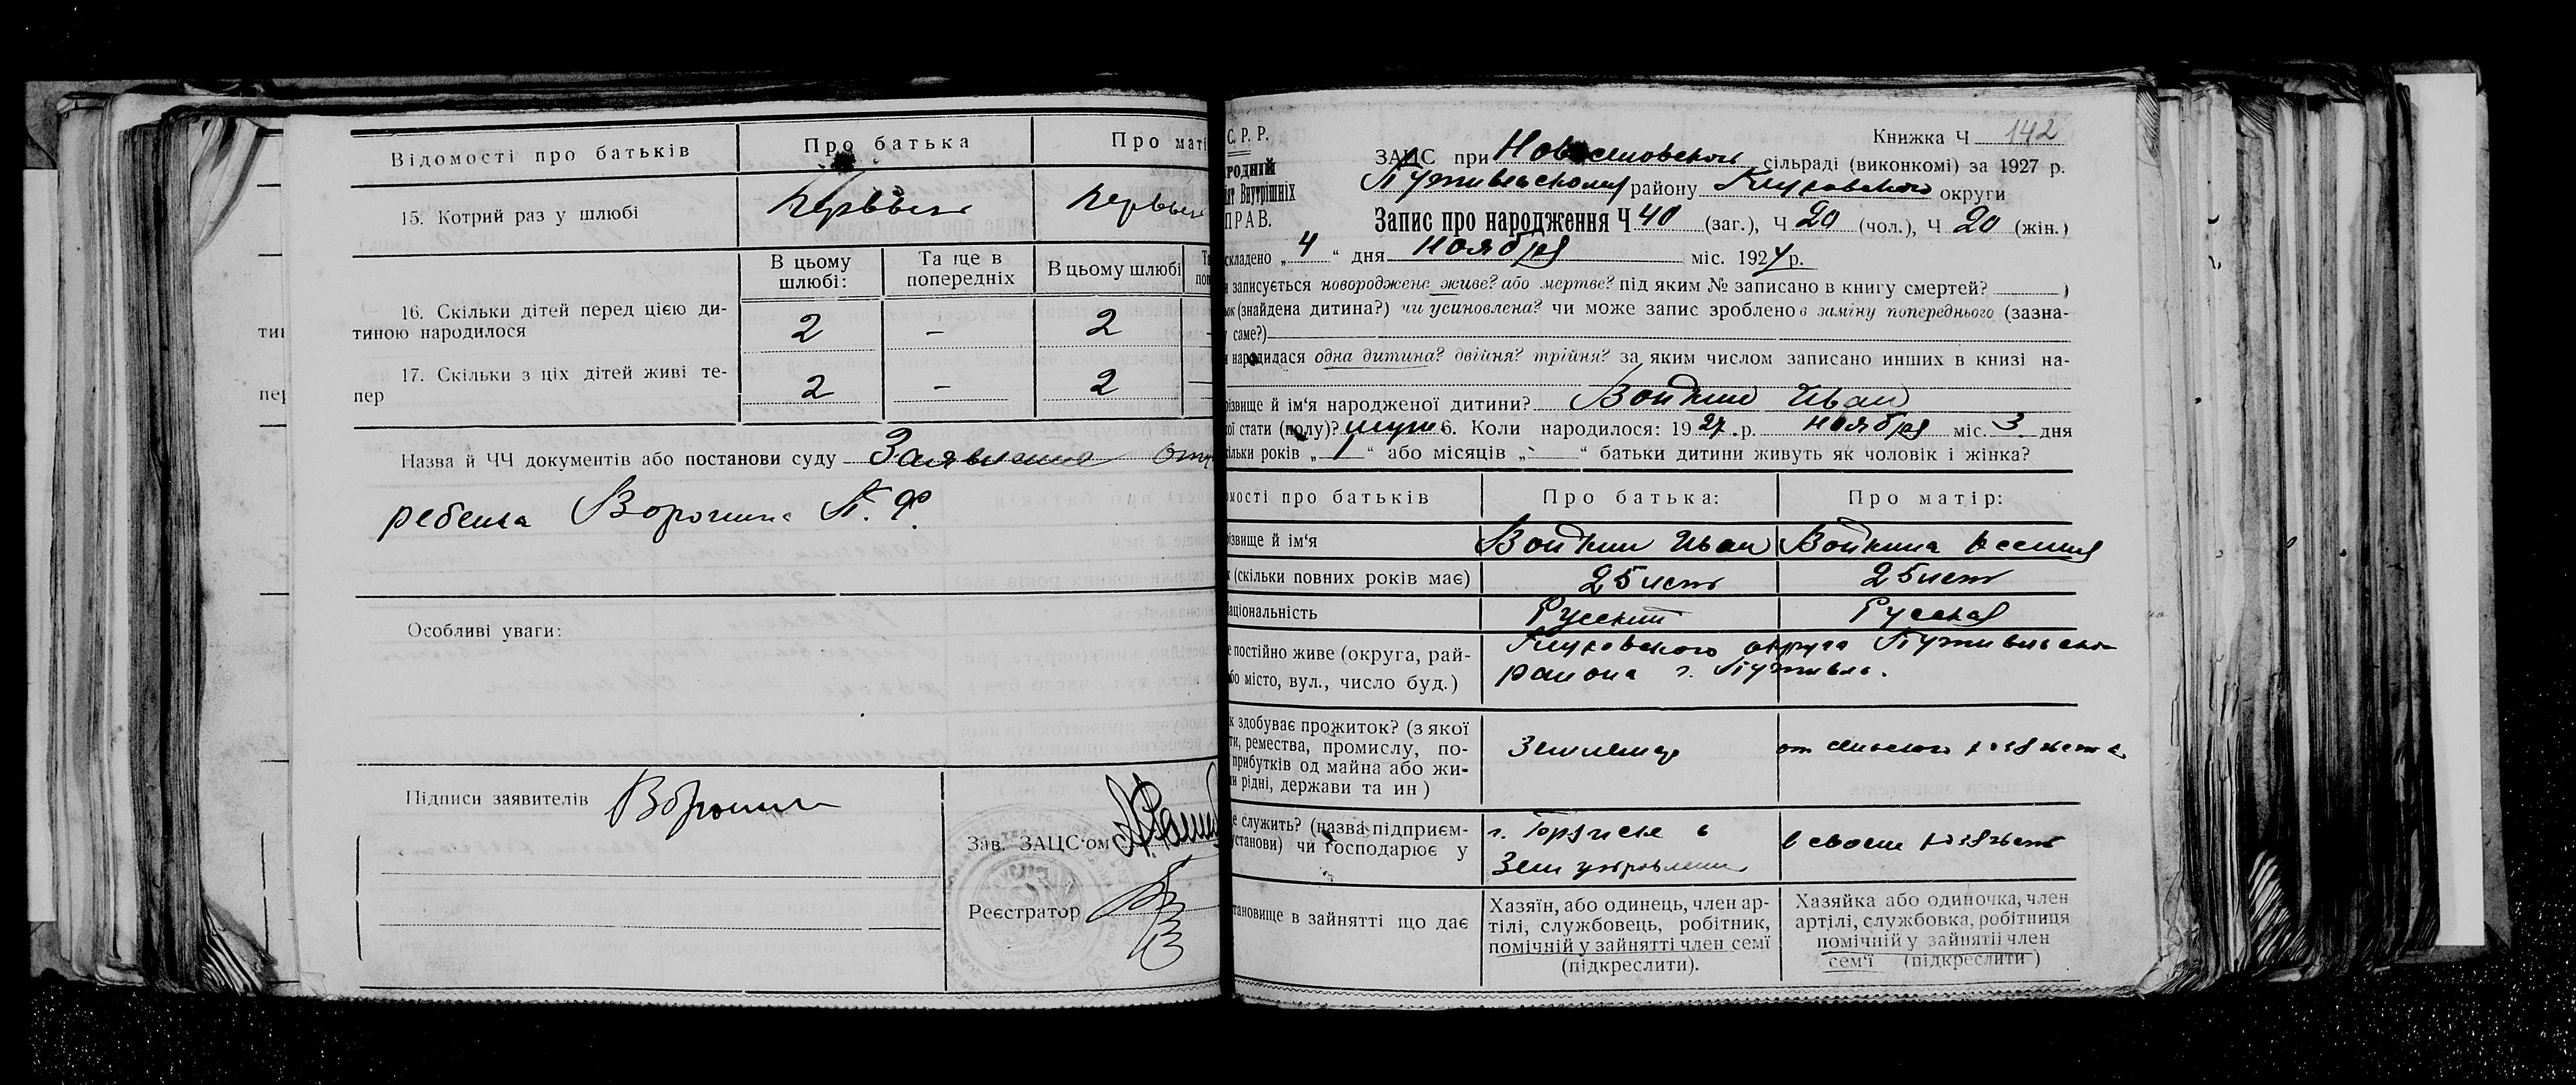 Відомості про батьків
Про батька
Про маті
15. Котрий раз у шлюбі
Первый
Первы
В цьому шлюбі:
Та ще в попередніх
В цьому шлюбі
16. Скільки дітей перед цією ди-
тиною народилося
2
–
2
17. Скільки з ціх дітей живі те-
пер
2
–
2
Назва й ЧЧ документів або постанови суду Заявление отц
ребенка Воронина П. Ф.
Особливі уваги:
Підписи заявителів
Воронин
Зав. ЗАЦС'ом
Реєстратор
тиі
пеј
С. Р. Р.
РОДНІЙ
Внутрішніх
ПРАВ.
Книжка Ч 142
ЗАЦС при сільраді (виконкомі) за 1927 р.
Путивльского району Глуховского округи
Запис про народження Ч 40 (заг.), Ч 20 (чол.), Ч 20 (жін.)
складено „4“ дня ноября міс. 1927 р.
записується новороджене живе? або мертве? під яким № записано в книгу смертей? )
(знайдена дитина?) чи усиновлена? чи може запис зроблено в заміну попереднього (зазна-
саме?)
народилася одна дитина? двійня? трійня? за яким числом записано инших в книзі на-
різвище й ім'я народженої дитини? Войкин Иван
стати (полу)? муж 6. Коли народилося: 1927 р. ноября міс. 3 дня
ільки років „1“ або місяців „-“ батьки дитини живуть як чоловік і жінка?
мості про батьків
Про батька:
Про матір:
різвище й ім'я
Войкин Иван
Войкина Ксения
(скільки повних років має)
25 лет
25 лет
аціональність
Русский
Русская
постійно живе (округа, рай-
бо місто, вул., число буд.)
Глуховского округа Путивльского
района г. Путивль.
к здобуває прожиток? (з якої
ти, ремества, промислу, по-
прибутків од майна або жи-
рідні, держави та ин)
Землемер
от сельского хозяйства
е служить? (назва підприєм-
установи) чи господарює у
г. в
Зем управлении
в своем хозяйстве
тановище в зайнятті що дає
Хазяїн, або одинець, член ар-
тілі, службовець, робітник,
помічній у зайнятті член семї
(підкреслити).
Хазяйка або одиночка, член
артілі, службовка, робітниця
помічній у зайнятіі член
сем'ї (підкреслити)